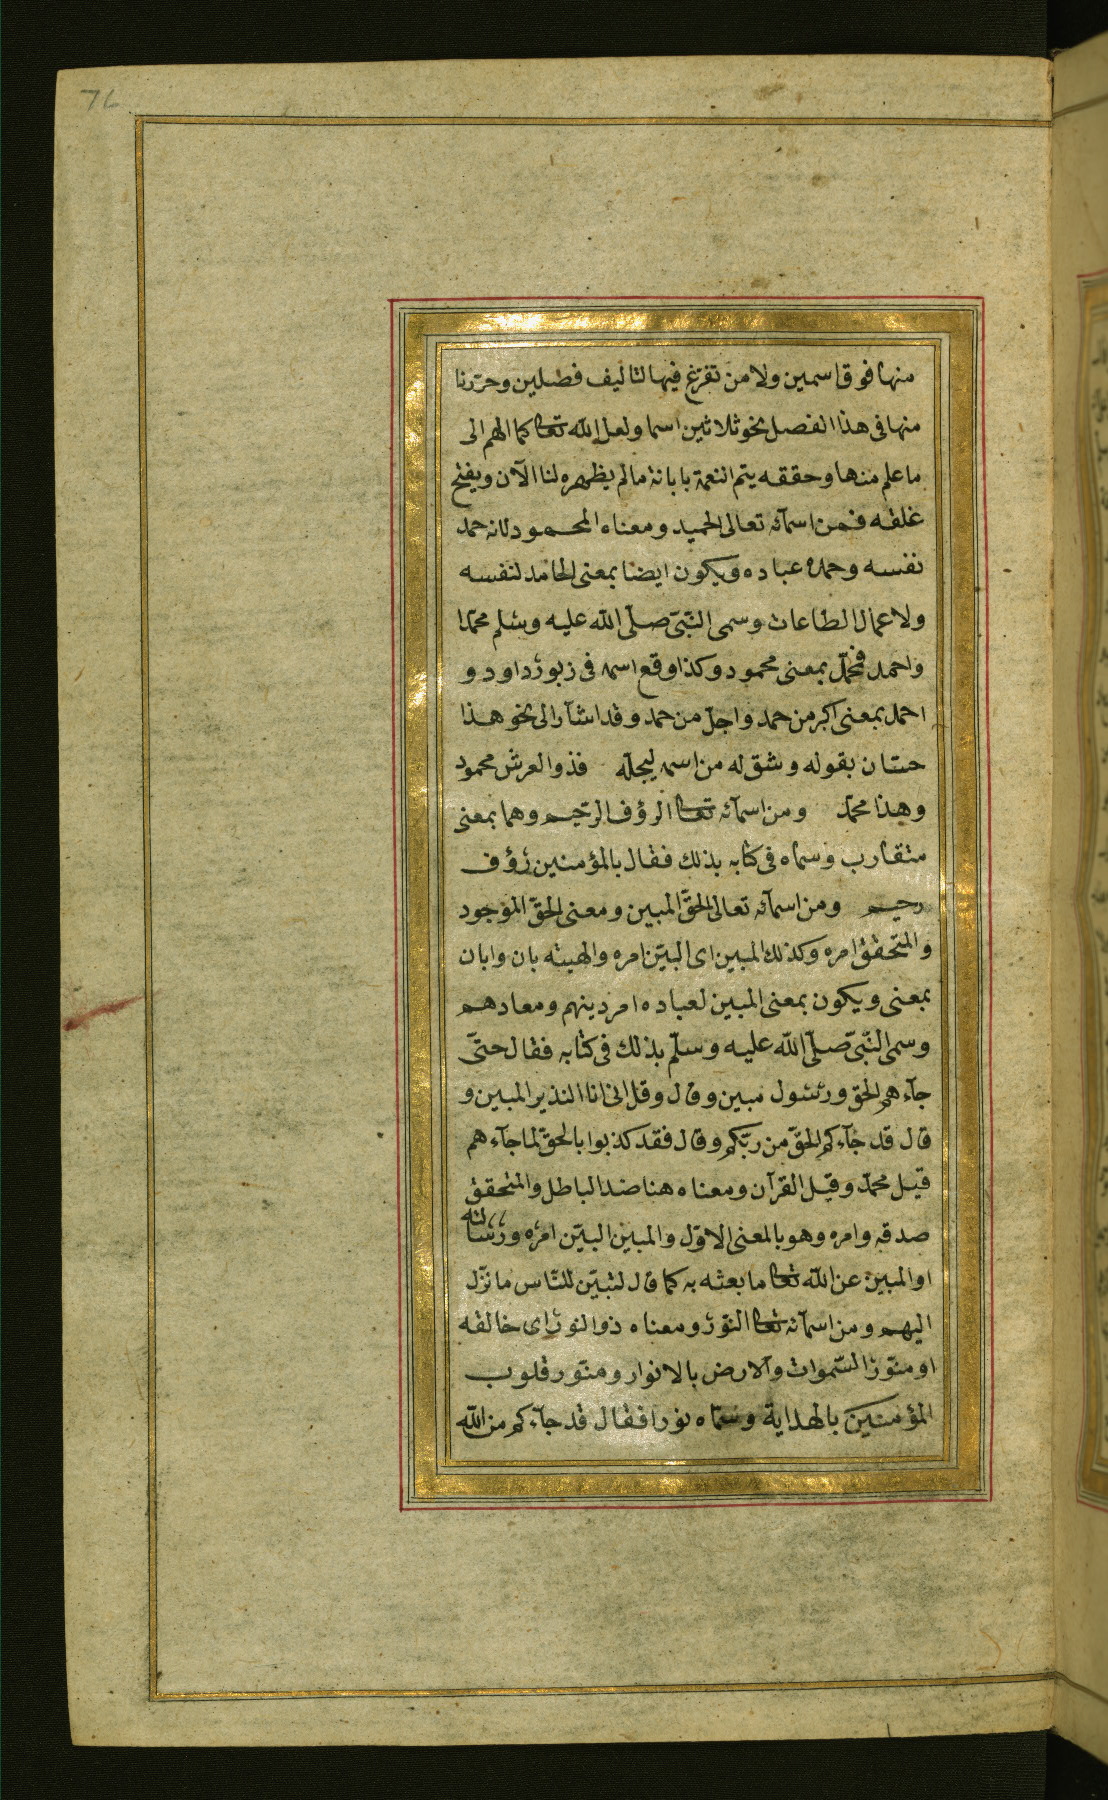 76
منها فوق اسمين ولا من تفرّغ فيها لتاليف فصلين وحرّرنا
منها فى هذا الفصل نحو ثلاثين اسما ولعل الله تعا كما الهم الى
ما علم منها وحققه يتم النعمة بابانة ما لم يظهره لنا الآن ويفتح
غلقه فمن اسمآئه تعالى الحميد ومعناه المحمود لانه حمد
نفسه وحمده عباده ويكون ايضا بمعنى الحامد لنفسه
ولاعمال الطاعات وسمى النّبىّ صلّى الله عليه وسلم محمّدا
واحمد فمحمّد بمعنى محمود وكذا وقع اسمه فى زبور داود و
احمد بمعنى اكبر من حمد واجلّ من حمد وقد اشآر الى نحو هذا
حسّان بقوله وشق له من اسمه ليجلّه فذو العرش محمود
وهذا محمّد ومن اسمآئه تعا الرؤف الرحيم وهما بمعنى
متقارب وسماه فى كتابه بذلك فقال بالمؤمنين رؤف
رحيم ومن اسمآئه تعالى الحقّ المبين ومعنى الحقّ الموجود
والمتحقق امره وكذلك المبين اى البيّن امره والهيته بان وابان
بمعنى ويكون بمعنى المبين لعباده امر دينهم ومعادهم
وسمى النّبىّ صلّى الله عليه وسلّم بذلك فى كتابه فقال حتّى
جآءهم الحق ورسول مبين وقال وقل انى انا النذير المبين و
قال قد جآءكم الحقّ من ربّكم وقال فقد كذبوا بالحقّ لما جآءهم
قيل محمّد وقيل القرآن ومعناه هنا ضد الباطل والمتحقق
صدقه وامره وهو بالمعنى الاوّل والمبين البيّن امره ورسالته
او المبين عن الله تعا ما بعثه به كما قال لتبيّن للنّاس ما نزّل
اليهم ومن اسمآئه تعا النّور ومعناه ذو النور اى خالقه
او منوّر السّموات والارض بالانوار ومنوّر قلوب
المؤمنين بالهداية وسمّاه نورا فقال قد جآءكم من الله